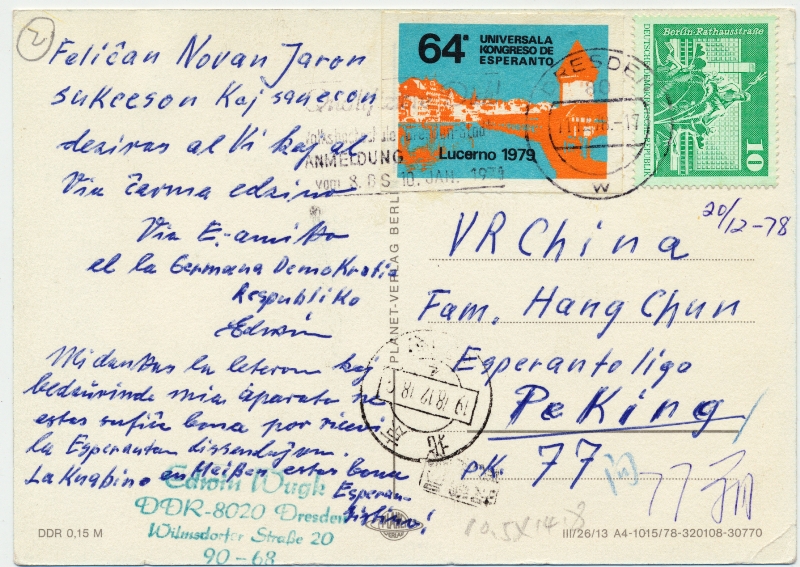 Feliĉan Novan Jaron
sukceson kaj sanecon
deziras al Vi kaj al
Via ĉarma edzino
Via E-amiko
el la Germana Demokratia
Respubliko
Edwin
Mi dankas la leteron kaj
bedaŭrinde mia aparato ne
estas sufiĉe bona por ricevi
la Esperantan dissendojn.
La Knabino en Meißen estas bona
Esperan-
tistino!
Edwin Wugk
DDR-8020 Dresden
Wilmsdorfer Straße 20
90-68
DDR 0,15 M
PLANET-VERLAG BERLIN
64ª UNIVERSALA
KONGRESO DE
ESPERANTO
Lucerno 1979
ANMELDUNG
vom 8. BIS 10. JAN. 1979
DRESDEN
w
Berlin Rathausstraße
DEUTSCHE DEMOKRATISCHE REPUBLIK
10
20/12-78
VR China
Fam. Hang Chun
Esperanto ligo
Peking
pk. 77
北京
77
10.5X14.8
III/26/13 A4-1015/78-320108-30770